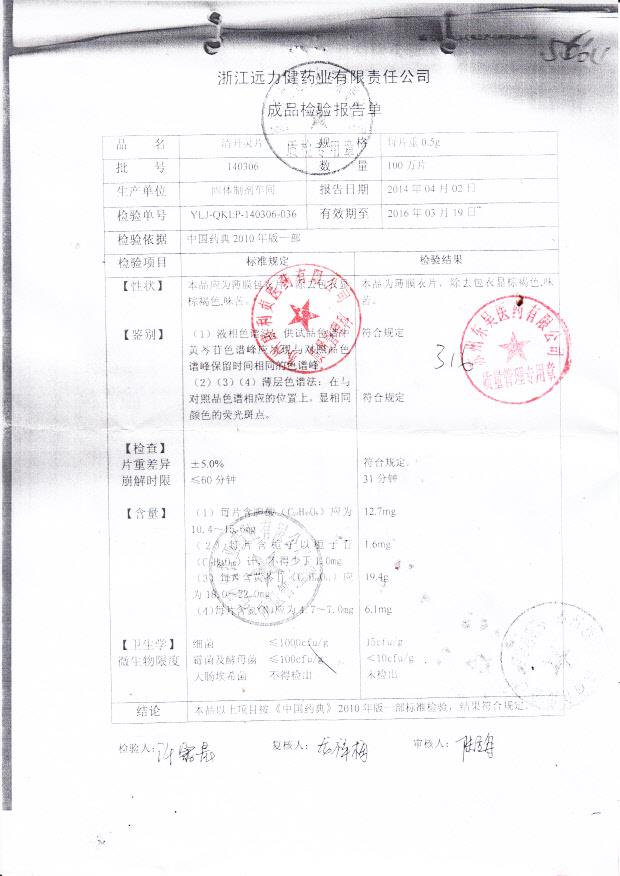 浙江远力健药业有限责任公司
成品检验报告单
品 名 清开灵片 规 格 每片重0.5g
批 号 140306 数 量 100万片
生产单位 固体制剂车间 报告日期 2014年04月02日
检验单号 YLJ-QKLP-140306-036 有效期至 2016年03月19日
检验依据 中国药典2010年版一部
检验项目 标准规定 检验结果
【性状】 本品应为薄膜包衣片,除去包衣显 本品为薄膜衣片,除去包衣显棕褐色,味
棕褐色,味苦。 苦。
【鉴别】 (1)液相色谱法:供试品色谱中 符合规定
黄芩苷色谱峰应呈现与对照品色
谱峰保留时间相同的色谱峰。
(2)(3)(4)薄层色谱法:在与
对照品色谱相应的位置上,显相同 符合规定
颜色的荧光斑点。
316
质量管理专用章
【检查】
片重差异 ±5.0% 符合规定
崩解时限 ≤60分钟 31分钟
【含量】 (1)每片含胆酸 应为 12.7mg
10.4~15.6mg
(2)每片含栀子以栀子苷 1.6mg
计,不得少于1.0mg
(3)每片含黄芩苷 应 19.4g
为18.0~22.0mg
(4)每片含氮(N)应为4.7~7.0mg 6.1mg
【卫生学】 细菌 ≤1000cfu/g 15cfu/g
微生物限度 霉菌及酵母菌 ≤100cfu/g <10cfu/g
大肠埃希菌 不得检出 未检出
结论 本品以上项目按《中国药典》2010年版一部标准检验,结果符合规定。
检验人: 复核人: 审核人: